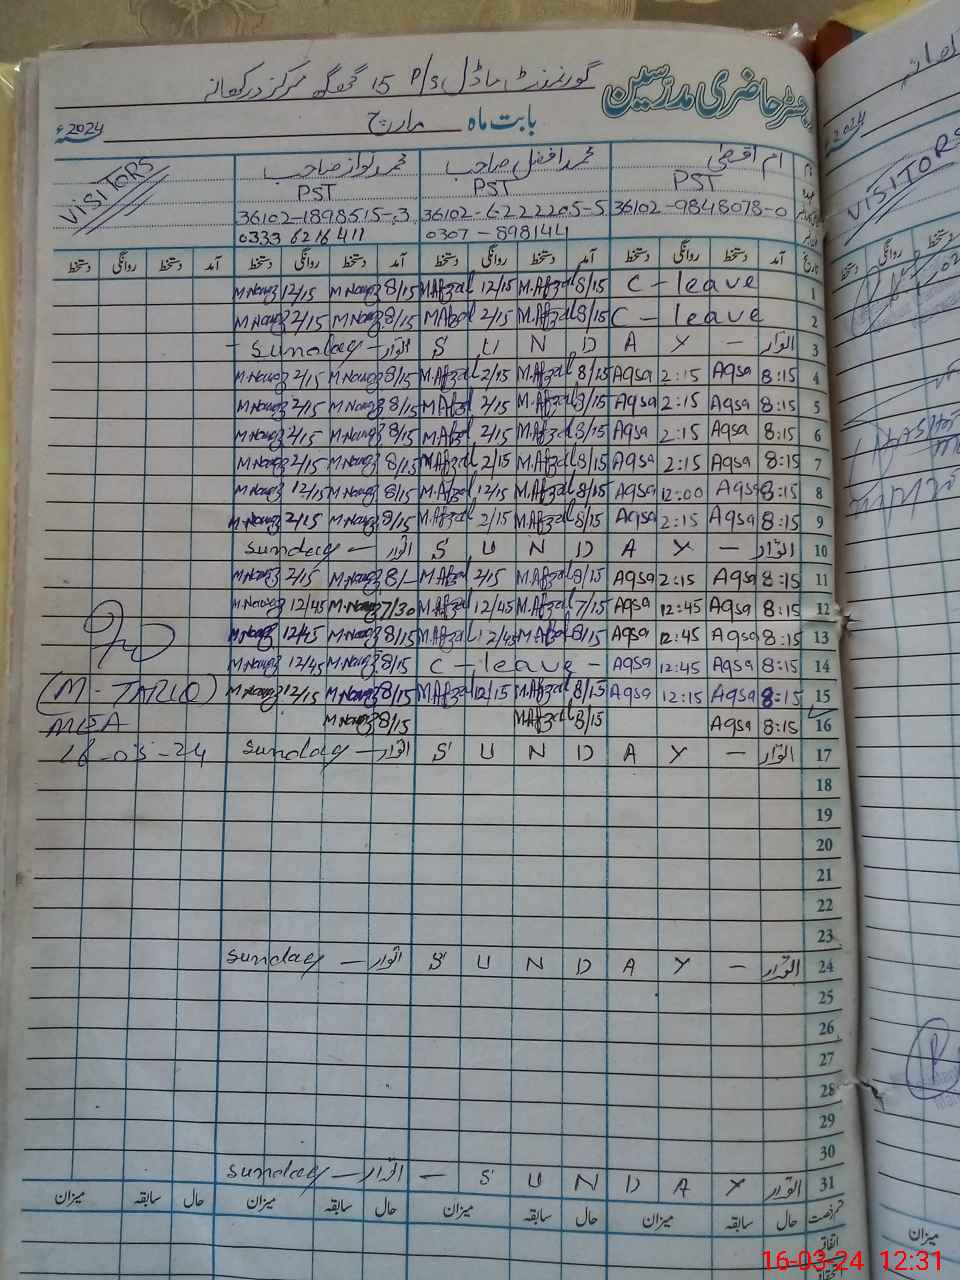 رجسٹر حاضری مدرسین گورنمنٹ ماڈل P/S 15 گھگھ مرکز درکھانہ
بابت ماہ مارچ 2024ء
ام اقصیٰ محمد افضل صاحب محمد نواز صاحب VISITORS
PST PST PST
36102-9848078-0 36102-6222205-5 36102-1898515-3
0307-8981441 0333 6216411
تاریخ آمد دستخط روانگی دستخط آمد دستخط روانگی دستخط آمد دستخط روانگی دستخط آمد دستخط روانگی دستخط
1 C-leave 8/15 M.Afzal 12/15 M.Afzal 8/15 M.Nawaz 12/15 M.Nawaz
2 C-leave 8/15 M.Afzal 2/15 M.Afzal 8/15 M.Nawaz 2/15 M.Nawaz
3 اتوار - S U N D A Y اتوار - Sunday -
4 8:15 Aqsa 2:15 Aqsa 8/15 M.Afzal 2/15 M.Afzal 8/15 M.Nawaz 2/15 M.Nawaz
5 8:15 Aqsa 2:15 Aqsa 8/15 M.Afzal 2/15 M.Afzal 8/15 M.Nawaz 2/15 M.Nawaz
6 8:15 Aqsa 2:15 Aqsa 8/15 M.Afzal 2/15 M.Afzal 8/15 M.Nawaz 2/15 M.Nawaz
7 8:15 Aqsa 2:15 Aqsa 8/15 M.Afzal 2/15 M.Afzal 8/15 M.Nawaz 2/15 M.Nawaz
8 8:15 Aqsa 12:00 Aqsa 8/15 M.Afzal 12/15 M.Afzal 8/15 M.Nawaz 12/15 M.Nawaz
9 8:15 Aqsa 2:15 Aqsa 8/15 M.Afzal 2/15 M.Afzal 8/15 M.Nawaz 2/15 M.Nawaz
10 اتوار - S U N D A Y اتوار - Sunday
11 8:15 Aqsa 2:15 Aqsa 8/15 M.Afzal 2/15 M.Afzal 8/- M.Nawaz 2/15 M.Nawaz
12 8:15 Aqsa 12:45 Aqsa 7/15 M.Afzal 12/45 M.Afzal 7/30 M.Nawaz 12/45 M.Nawaz
13 8:15 Aqsa 12:45 Aqsa 8/15 M.Afzal 12/45 M.Afzal 8/15 M.Nawaz 12/45 M.Nawaz
14 8:15 Aqsa 12:45 Aqsa C-leave - 8/15 M.Nawaz 12/45 M.Nawaz
15 8:15 Aqsa 12:15 Aqsa 8/15 M.Afzal 12/15 M.Afzal 8/15 M.Nawaz 12/15 M.Nawaz (M-TARIQ)
16 8:15 Aqsa 8/15 M.Afzal 8/15 M.Nawaz MEA
17 اتوار - S U N D A Y اتوار - Sunday 16-03-24
18
19
20
21
22
23
24 اتوار - S U N D A Y اتوار - Sunday
25
26
27
28
29
30
31 اتوار S U N D A Y - اتوار - Sunday
قسم رخصت حال سابقہ میزان حال سابقہ میزان حال سابقہ میزان حال سابقہ میزان
اتفاقیہ
2024ء
VISITORS
دستخط روانگی دستخط
میزان
16-03-24 12:31